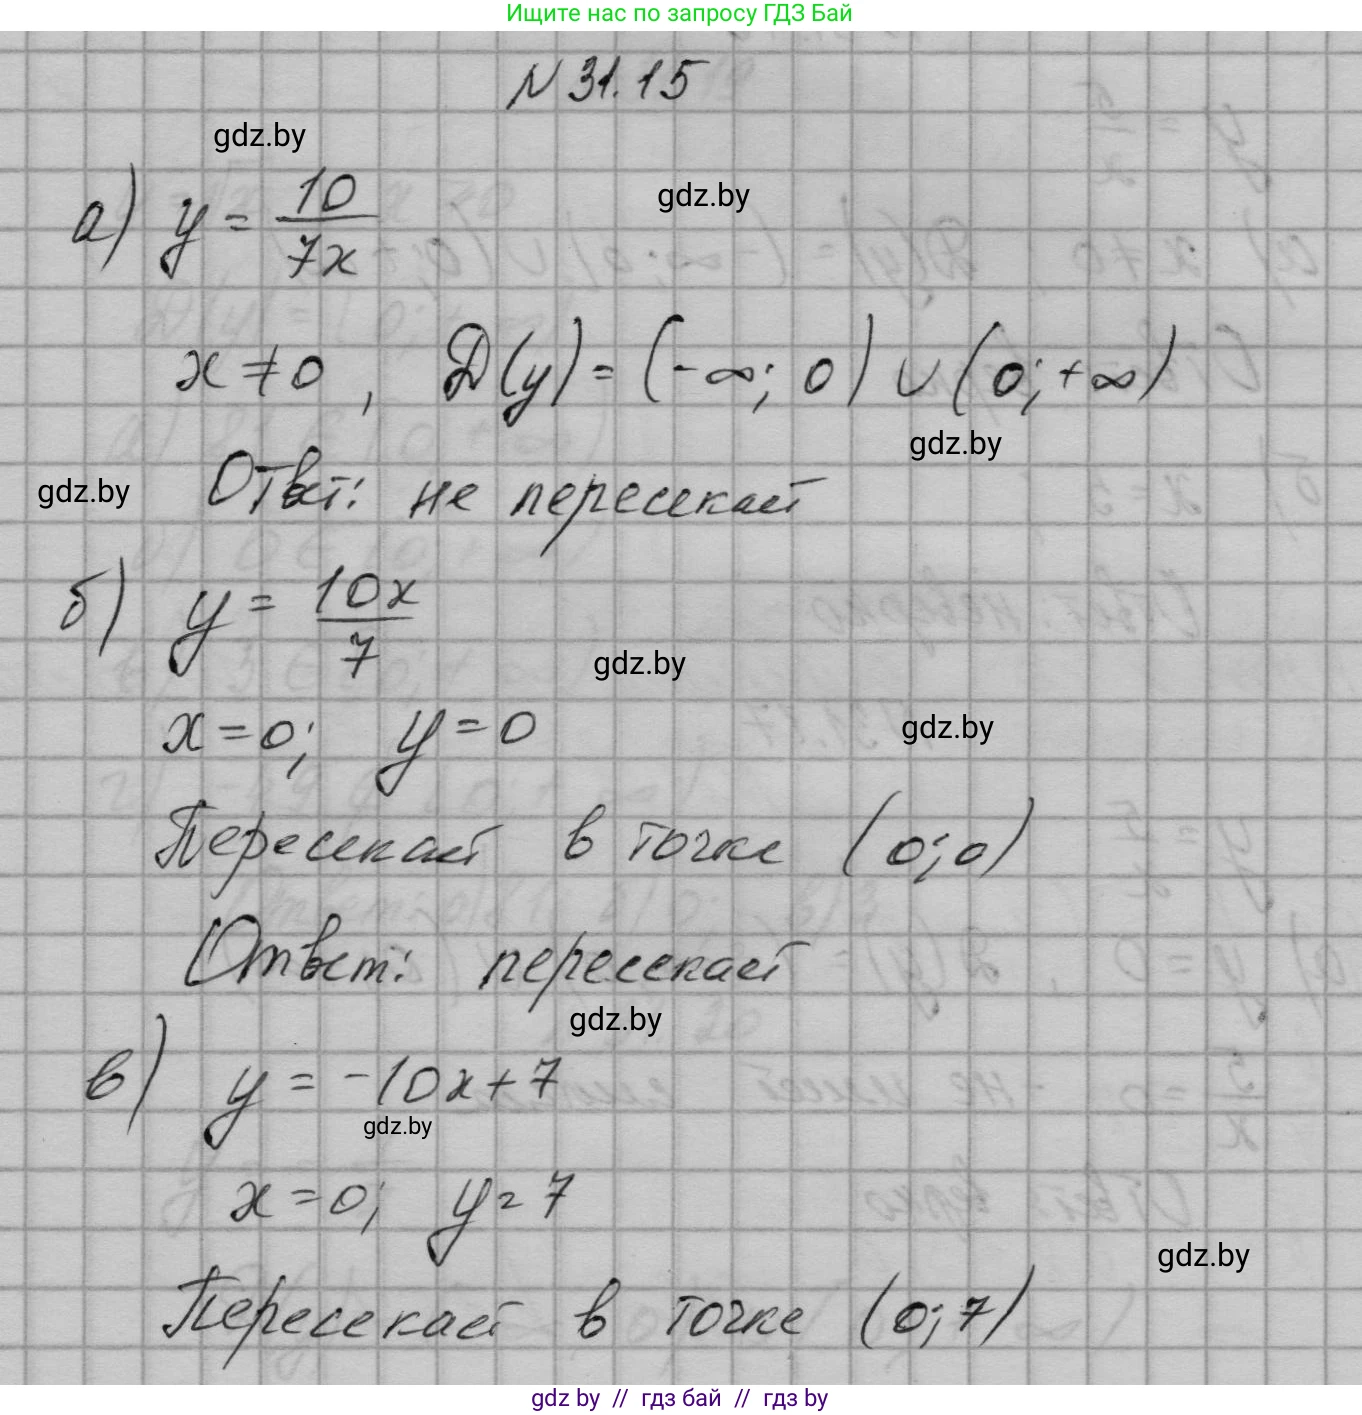 Ищите нас по запросу ГДЗ Бай
N 31.15
gdz.by
gdz.by
а) y = 10/7x
x ≠ 0, D(y) = (-∞; 0) ∪ (0; +∞)
gdz.by
gdz.by
Ответ: не пересекает
б) y = 10x/7
gdz.by
x = 0; y = 0
gdz.by
Пересекает в точке (0; 0)
Ответ: пересекает
gdz.by
в) y = -10x + 7
gdz.by
x = 0; y = 7
gdz.by
Пересекает в точке (0; 7)
gdz by // гдз бай // гдз by